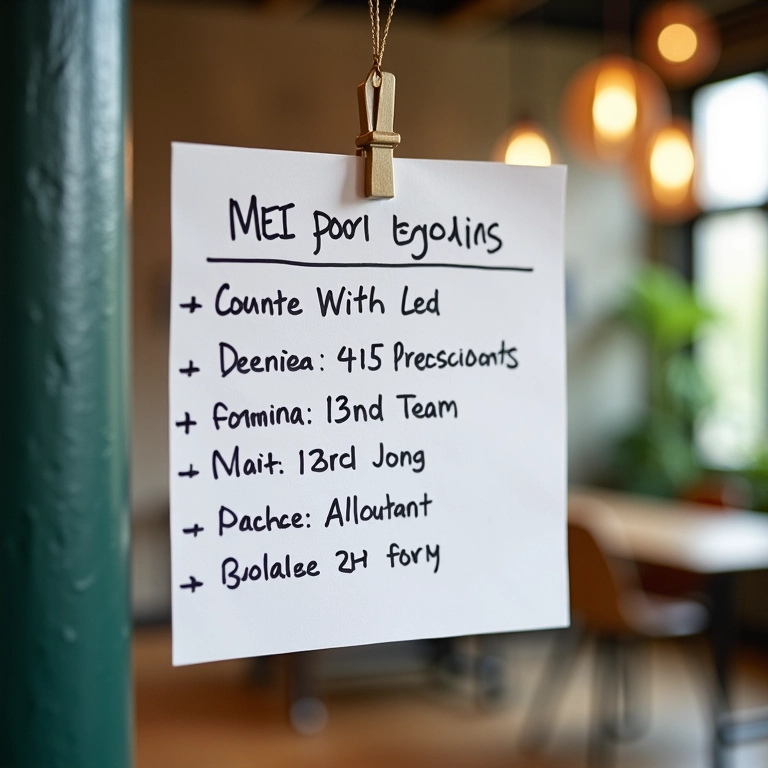 MEI poor Egolins
+ Counte With Led
+ Deeniea: 415 Precscioants
+ Formina: 13nd Team
+ Mait: 13rd Jong
+ Pachce: Alloutant
+ Bolalee 2H fory